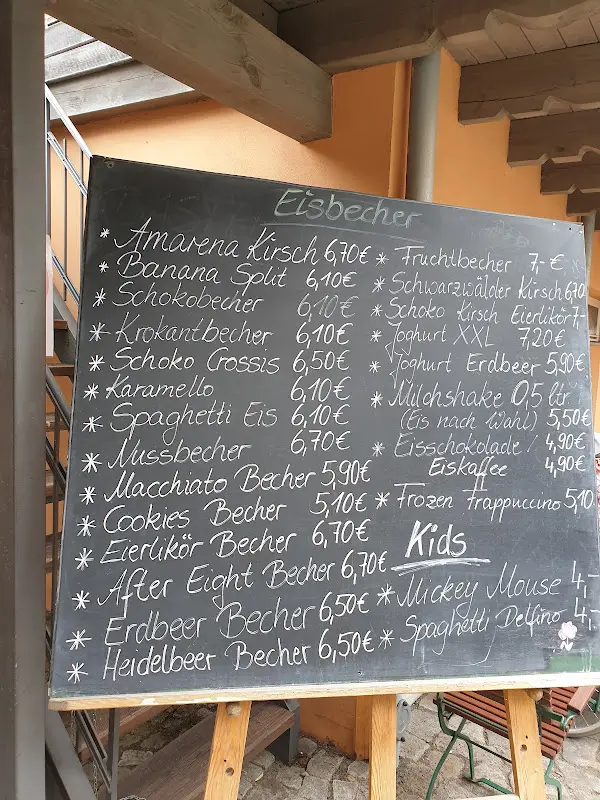 Eisbecher
* Amarena Kirsch 6,70€
* Banana Split 6,10€
* Schokobecher 6,10€
* Krokantbecher 6,10€
* Schoko Crossis 6,50€
* Karamello 6,10€
* Spaghetti Eis 6,10€
* Nussbecher 6,70€
* Macchiato Becher 5,90€
* Cookies Becher 5,10€
* Eierlikör Becher 6,70€
* After Eight Becher 6,70€
* Erdbeer Becher 6,50€
* Heidelbeer Becher 6,50€
* Fruchtbecher 7,- €
* Schwarzwälder Kirsch 6,70
* Schoko Kirsch Eierlikör 7,-
* Joghurt XXL 7,20€
* Joghurt Erdbeer 5,90€
* Milchshake 0,5 ltr.
(Eis nach Wahl) 5,50€
* Eisschokolade / 4,90€
Eiskaffee 4,90€
* Frozen Frappuccino 5,10
Kids
* Mickey Mouse 4,-
* Spaghetti Delfino 4,-